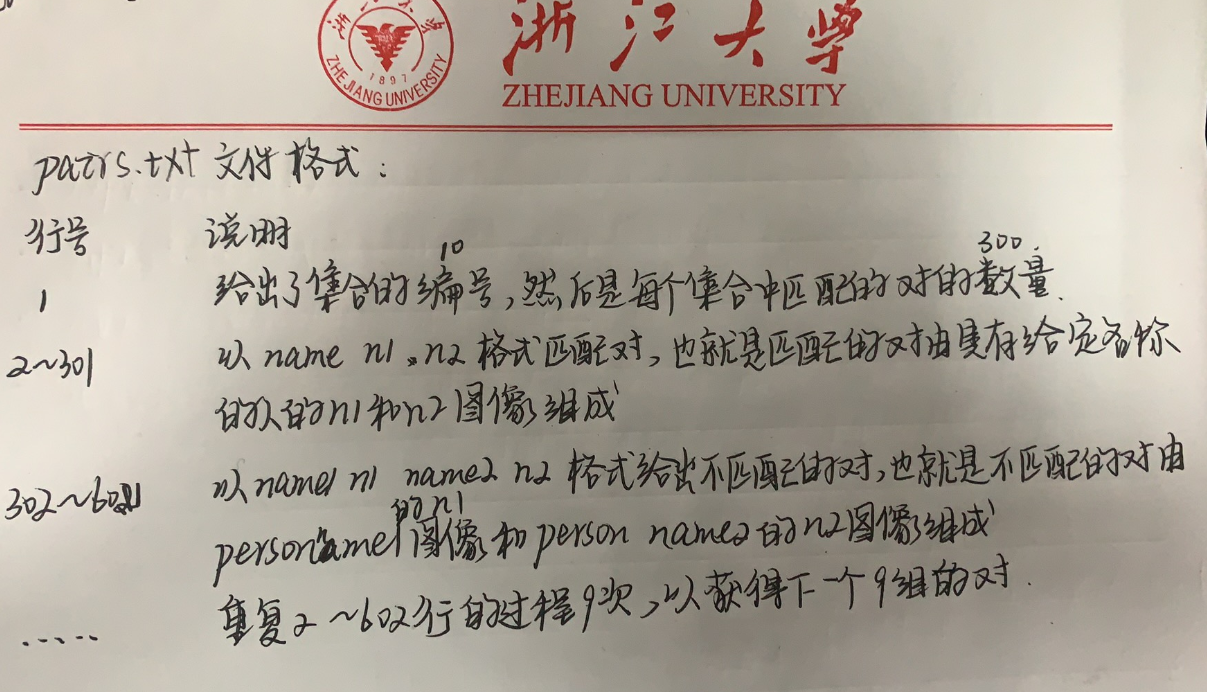 浙江大学
ZHEJIANG UNIVERSITY
1897
浙江大学
ZHEJIANG UNIVERSITY
pairs.txt 文件格式:
行号 说明
10 300.
1 给出了集合的编号,然后是每个集合中匹配的对的数量.
2~301 以 name n1 n2 格式匹配对,也就是匹配的对由具有给定名称
的人的n1和n2图像组成
302~601 以name1 n1 name2 n2 格式给出不匹配的对,也就是不匹配的对由
的n1
person name1图像和person name2的n2图像组成
..... 重复2~602行的过程9次,以获得下一个9组的对.